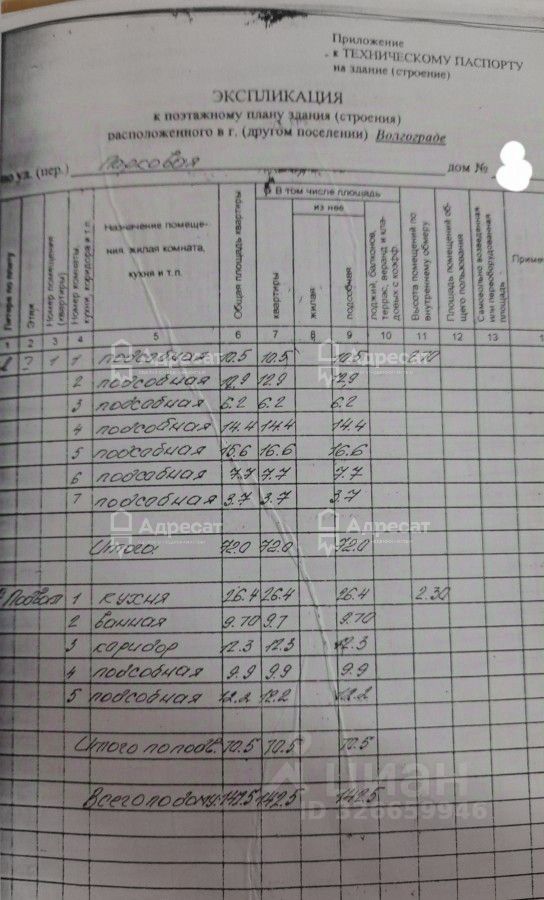 Приложение
к ТЕХНИЧЕСКОМУ ПАСПОРТУ
на здание (строение)
ЭКСПЛИКАЦИЯ
к поэтажному плану здания (строения)
расположенного в г. (другом поселении) Волгограде
по ул. (пер.) Парковая дом №
Литера по плану
Этаж
Номер помещения (квартиры)
Номер комнаты, кухни, коридора и т.п.
Назначение помеще-
ния: жилая комната,
кухня и т.п.
Общая площадь квартиры
В том числе площадь
из нее
квартиры
жилая
подсобная
лоджий, балконов, террас, веранд и кладовых с коэфф.
Высота помещений по внутреннему обмеру
Площадь помещений общего пользования
Самовольно возведенная или переоборудованная площадь
Приме
1 2 3 4 5 6 7 8 9 10 11 12 13
1 1 подсобная 10.5 10.5 10.5
2 подсобная 12.9 12.9 12.9
3 подсобная 6.2 6.2 6.2
4 подсобная 14.4 14.4 14.4
5 подсобная 16.6 16.6
6 подсобная 7.7 7.7 7.7
7 подсобная 3.7 3.7 3.7
Адресат Адресат
Итого 72.0 72.0 72.0
Адресат Адресат
Подвал 1 кухня 26.4 26.4 26.4 2.30
2 ванная 9.70 9.7 9.70
3 каридор 12.3 12.3 12.3
4 подсобная 9.9 9.9 9.9
5 подсобная 12.2 12.2 12.2
Итого по подв. 70.5 70.5 70.5
Всего по дому: 142.5 142.5
циан
ID 328659946